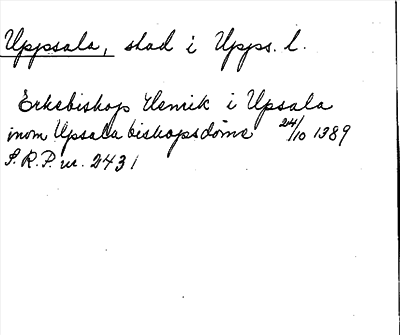 Uppsala, stad i Upps. l.
Erkebiskop Henrik i Upsala
inom Upsala biskopsdöme 24/10 1389
S.R.P. nr. 2431